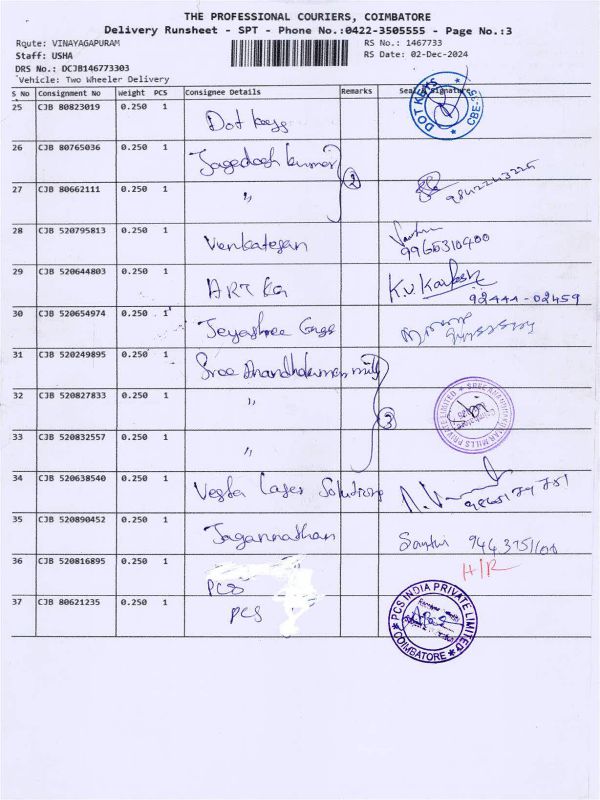 THE PROFESSIONAL COURIERS, COIMBATORE
Delivery Runsheet - SPT - Phone No.:0422-3505555 - Page No.:3
Route: VINAYAGAPURAM RS No.: 1467733
Staff: USHA RS Date: 02-Dec-2024
DRS No.: DCJB146773303
Vehicle: Two Wheeler Delivery
S No Consignment No Weight PCS Consignee Details Remarks Seal & Signature
25 CJB 80823019 0.250 1 Dot keys DOT KEYS CBE-35
26 CJB 80765036 0.250 1 Jagedash kumar
27 CJB 80662111 0.250 1 " 2
28 CJB 520795813 0.250 1 Venkatesan 9965310400
29 CJB 520644803 0.250 1 ARTKG K.V. Kartesh
92444-02459
30 CJB 520654974 0.250 1 Jeyashree Engg
31 CJB 520249895 0.250 1 Sree Anandhakumar mills
32 CJB 520827833 0.250 1 " SREE ANANDHAKUMAR MILLS PRIVATE LIMITED
33 CJB 520832557 0.250 1 " 3
34 CJB 520638540 0.250 1 Vesta Laser Solutions
35 CJB 520890452 0.250 1 Jagannathan Santhi
36 CJB 520816895 0.250 1 PCS H/R
37 CJB 80621235 0.250 1 PCS PCS INDIA PRIVATE LIMITED COIMBATORE